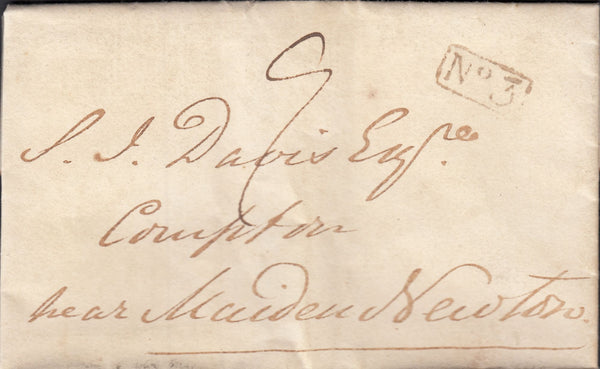 9
No 3
S. J. Davis Esqre.
Compton
near Maiden Newton.